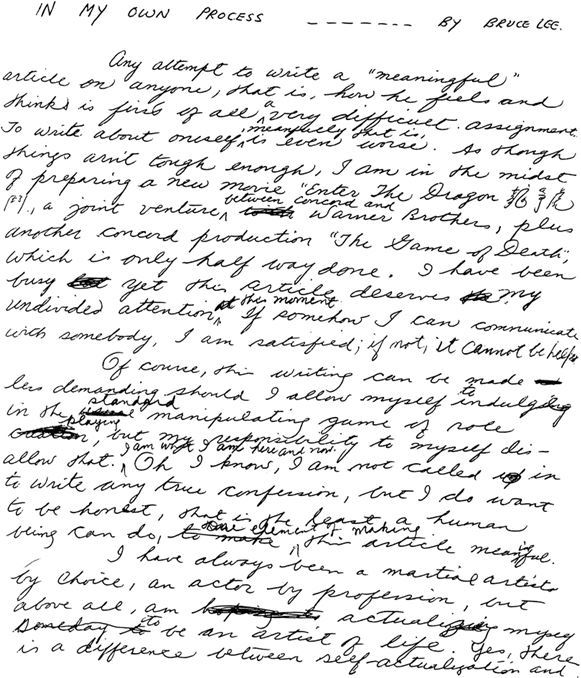 IN MY OWN PROCESS ------- BY BRUCE LEE.
Any attempt to write a "meaningful"
article on anyone, that is, how he feels and
thinks is first of all a very difficult assignment.
To write about oneself, meanfully that is, is even worse. As though
things arn't tough enough, I am in the midst
of preparing a new movie "Enter The Dragon
, a joint venture between concord and Warner Brothers, plus
another concord production "The Game of Death",
which is only half way done. I have been
busy yet this article deserves my
undivided attention at this moment. If somehow I can communicate
with somebody, I am satisfied; if not, it cannot be helped
Of course, this writing can be made
less demanding should I allow myself to indulge
in the standard manipulating game of role
playing, but my responsibility to myself dis-
allow that. I am what I am here and now. Oh I know, I am not called in
to write any true confession, but I do want
to be honest, that is the least a human
being can do, element of making this article meaningful.
I have always been a martial artists
by choice, an actor by profession, but
above all, am actualizing myself
to be an artist of life. Yes, there
is a difference between self-actualization and